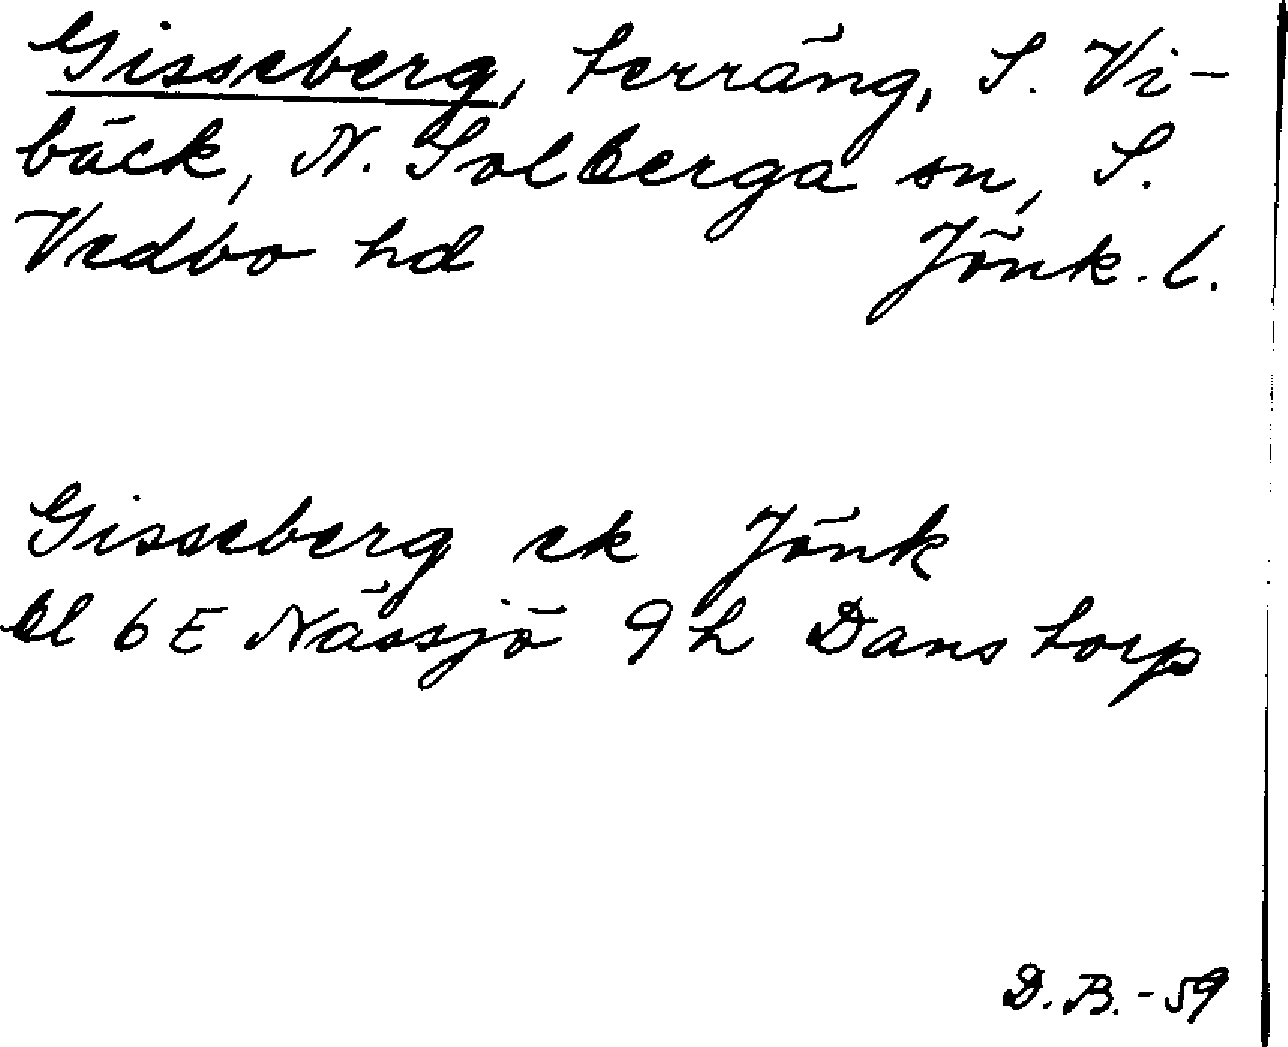 Gisseberg, terräng, S. Vi-
bäck, N. Solberga sn, S.
Vedbo hd Jönk. l.
Gisseberg ek Jönk
bl 6E Nässjö 9h Danstorp
D.B. -59